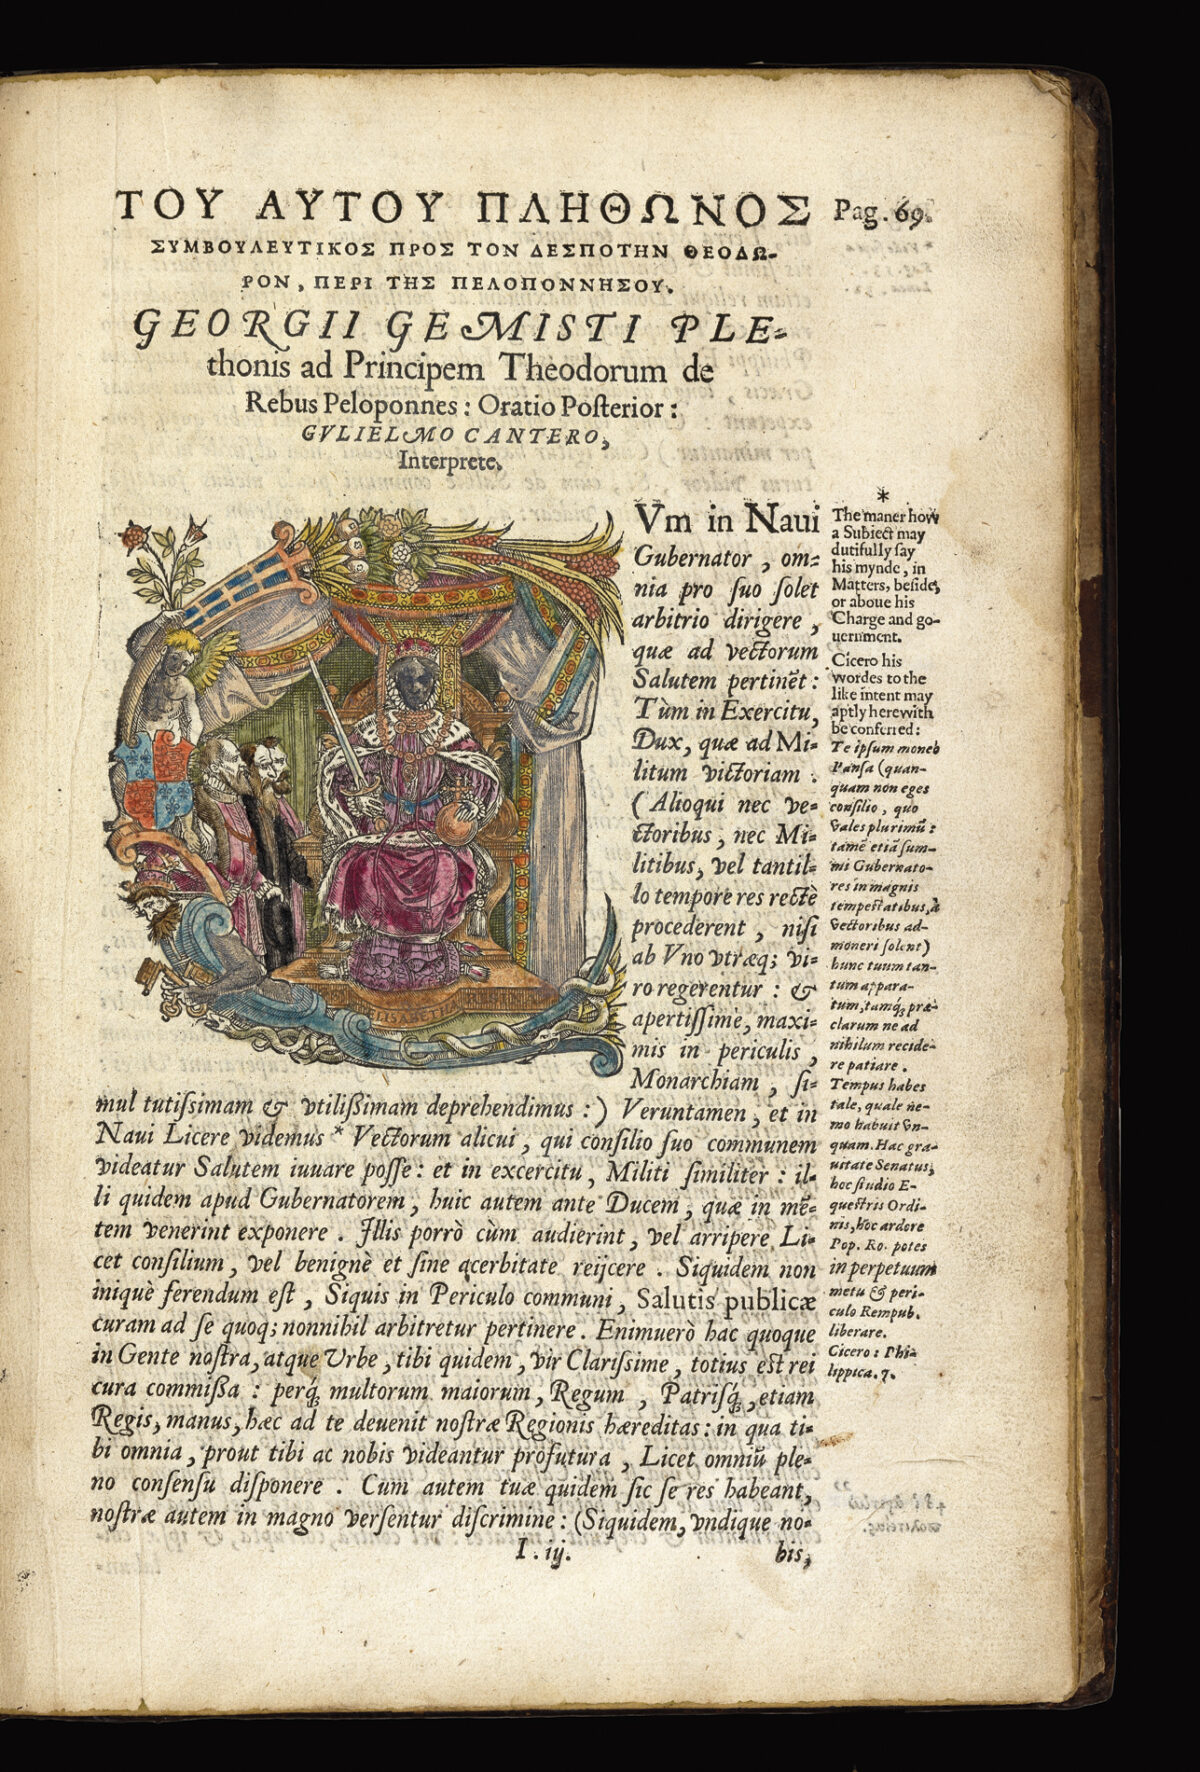 ΤΟΥ ΑΥΤΟΥ ΠΛΗΘΩΝΟΣ
Pag. 69.
ΣΥΜΒΟΥΛΕΥΤΙΚΟΣ ΠΡΟΣ ΤΟΝ ΔΕΣΠΟΤΗΝ ΘΕΟΔΩ-
ΡΟΝ, ΠΕΡΙ ΤΗΣ ΠΕΛΟΠΟΝΝΗΣΟΥ.
GEORGII GEMISTI PLE-
thonis ad Principem Theodorum de
Rebus Peloponnes: Oratio Poſterior:
GVLIELMO CANTERO,
Interprete.
CVm in Naui
Gubernator, om-
nia pro ſuo ſolet
arbitrio dirigere,
quæ ad vectorum
Salutem pertinēt:
Tùm in Exercitu,
Dux, quæ ad Mi-
litum victoriam.
(Alioqui nec ve-
ctoribus, nec Mi-
litibus, vel tantil-
lo tempore res rectè
procederent, niſi
ab Vno vtræq; vi-
ro regerentur: &
apertiſſimè, maxi-
mis in periculis,
Monarchiam, ſi-
mul tutiſsimam & vtiliſſimam deprehendimus:) Veruntamen, et in
Naui Licere videmus * Vectorum alicui, qui conſilio ſuo communem
videatur Salutem iuuare poſſe: et in excercitu, Militi ſimiliter: il-
li quidem apud Gubernatorem, huic autem ante Ducem, quæ in mē-
tem venerint exponere. Illis porrò cùm audierint, vel arripere Li-
cet conſilium, vel benignè et ſine acerbitate reijcere. Siquidem non
iniquè ferendum eſt, Siquis in Periculo communi, Salutis publicæ
curam ad ſe quoq; nonnihil arbitretur pertinere. Enimuerò hac quoque
in Gente noſtra, atque Vrbe, tibi quidem, vir Clariſsime, totius eſt rei
cura commiſſa: perq́; multorum maiorum, Regum, Patriſq́;, etiam
Regis, manus, hæc ad te deuenit noſtræ Regionis hæreditas: in qua ti-
bi omnia, prout tibi ac nobis videantur profutura, Licet omniū ple-
no conſenſu diſponere. Cum autem tuæ quidem ſic ſe res habeant,
noſtræ autem in magno verſentur diſcrimine: (Siquidem, vndique no-
I. iij.
bis,
*
The maner how
a Subiect may
dutifully ſay
his mynde, in
Matters, beſide,
or aboue his
Charge and go-
uernment.
Cicero his
wordes to the
like intent may
aptly herewith
be conferred:
Te ipſum moneo
Panſa (quan-
quam non eges
conſilio, quo
vales plurimū:
tamē etiā ſum-
mi Gubernato-
res in magnis
tempeſtatibus, à
vectoribus ad-
moneri ſolent)
hunc tuum tan-
tum appara-
tum, tamq́; præ-
clarum ne ad
nihilum recide-
re patiare.
Tempus habes
tale, quale ne-
mo habuit vn-
quam. Hac gra-
uitate Senatus,
hoc ſtudio E-
queſtris Ordi-
nis, hoc ardore
Pop. Ro. potes
in perpetuum
metu & peri-
culo Rempub.
liberare.
Cicero: Phi-
lippica. 7.
ELISABETHA